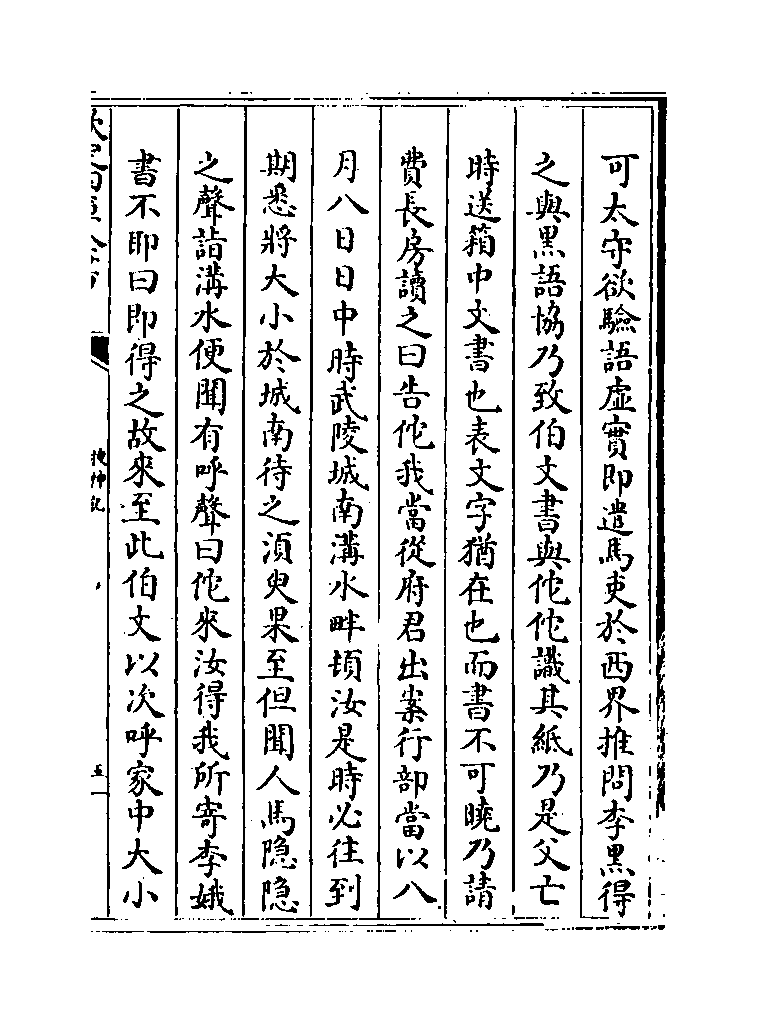 可太守欲驗語虛實即遣馬吏於西界推問李黑得
之與黑語協乃致伯文書與佗佗識其紙乃是父亡
時送箱中文書也表文字猶在也而書不可曉乃請
費長房讀之曰告佗我當從府君出案行部當以八
月八日日中時武陵城南溝水畔頓汝是時必往到
期悉將大小於城南待之湏臾果至但聞人馬隐隐
之聲詣溝水便聞有呼聲曰佗來汝得我所寄李娥
書不耶曰即得之故來至此伯文以次呼家中大小
搜神記
五